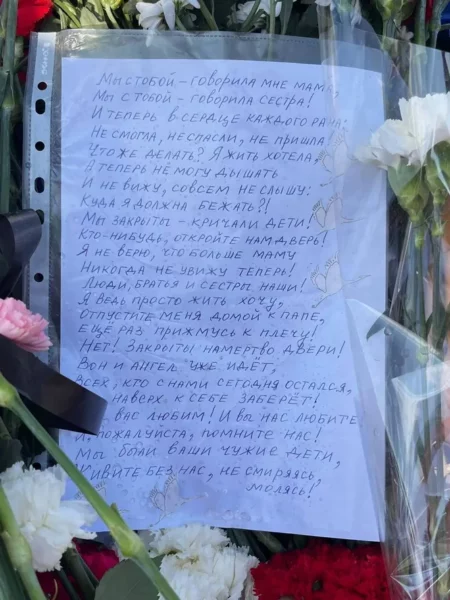 Мы с тобой – говорила мне мама,
Мы с тобой – говорила сестра!
И теперь в сердце каждого рана:
Не смогла, не спасли, не пришла.
Что же делать? Я жить хотела,
А теперь не могу дышать
И не вижу, совсем не слышу:
Куда я должна бежать?!
Мы закрыты – кричали дети!
Кто-нибудь, откройте нам дверь!
Я не верю, что больше маму
Никогда не увижу теперь!
Люди, братья и сестры наши!
Я ведь просто жить хочу,
Отпустите меня домой к папе,
Ещё раз прижмусь к плечу!
Нет! Закрыты намертво двери!
Вон и ангел уже идёт,
Всех, кто с нами сегодня остался,
наверх к себе заберёт!
вас любим! И вы нас любите
И, пожалуйста, помните нас!
Мы были ваши чужие дети,
Живите без нас, не смиряясь,
молясь!